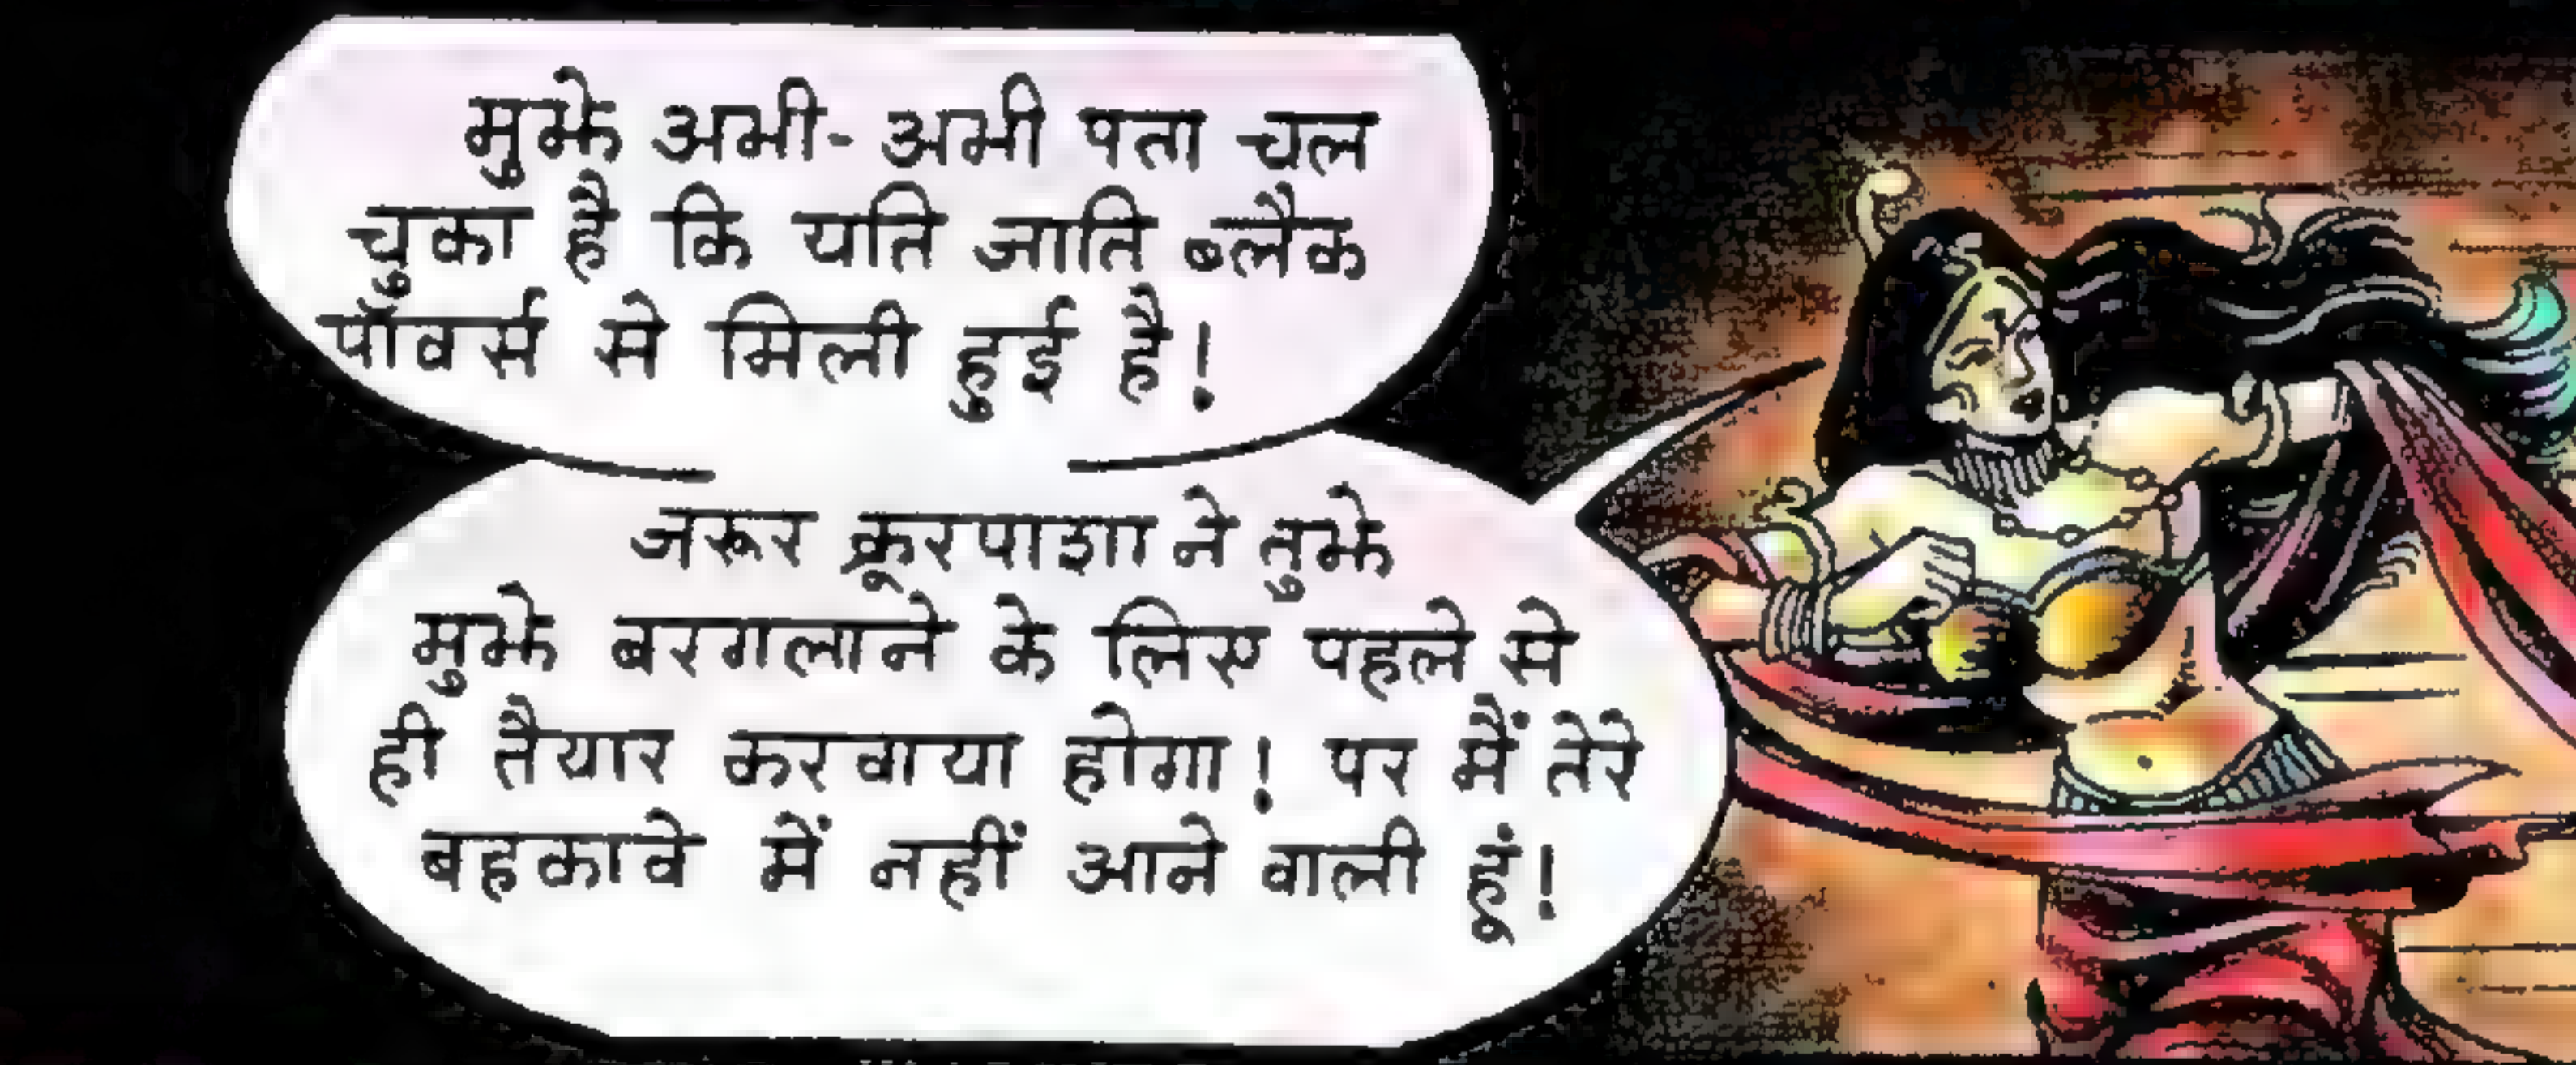 मुझे अभी-अभी पता चल
चुका है कि यति जाति ब्लैक
पॉवर्स से मिली हुई है!
जरूर क्रूरपाशा ने तुझे
मुझे बरगलाने के लिए पहले से
ही तैयार करवाया होगा! पर मैं तेरे
बहकावे में नहीं आने वाली हूं!